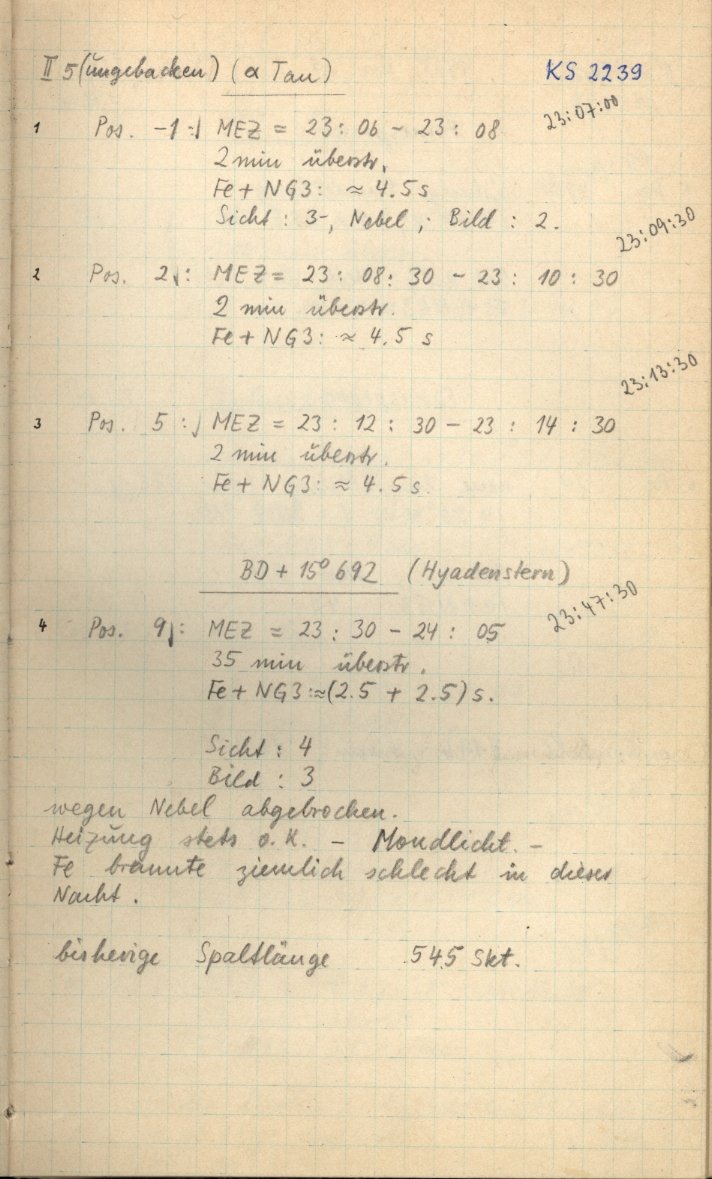 II 5 (ungebacken) (α Tau) KS 2239
23:07:00
1 Pos. -1: MEZ = 23 : 06 - 23 : 08
2 min überstr.
Fe + NG3: ≈ 4.5 s
Sicht : 3-, Nebel ; Bild : 2.
23:09:30
2 Pos. 2 : MEZ = 23 : 08 : 30 - 23 : 10 : 30
2 min überstr.
Fe + NG3: ≈ 4.5 s
23:13:30
3 Pos. 5 : MEZ = 23 : 12 : 30 - 23 : 14 : 30
2 min überstr.
Fe + NG3: ≈ 4.5 s.
BD + 15° 692 (Hyadenstern)
23:47:30
4 Pos. 9 : MEZ = 23 : 30 - 24 : 05
35 min überstr.
Fe + NG3:≈(2.5 + 2.5) s.
Sicht : 4
Bild : 3
wegen Nebel abgebrochen.
Heizung stets o. K. - Mondlicht. -
Fe brannte ziemlich schlecht in dieser
Nacht.
bisherige Spaltlänge 545 Skt.